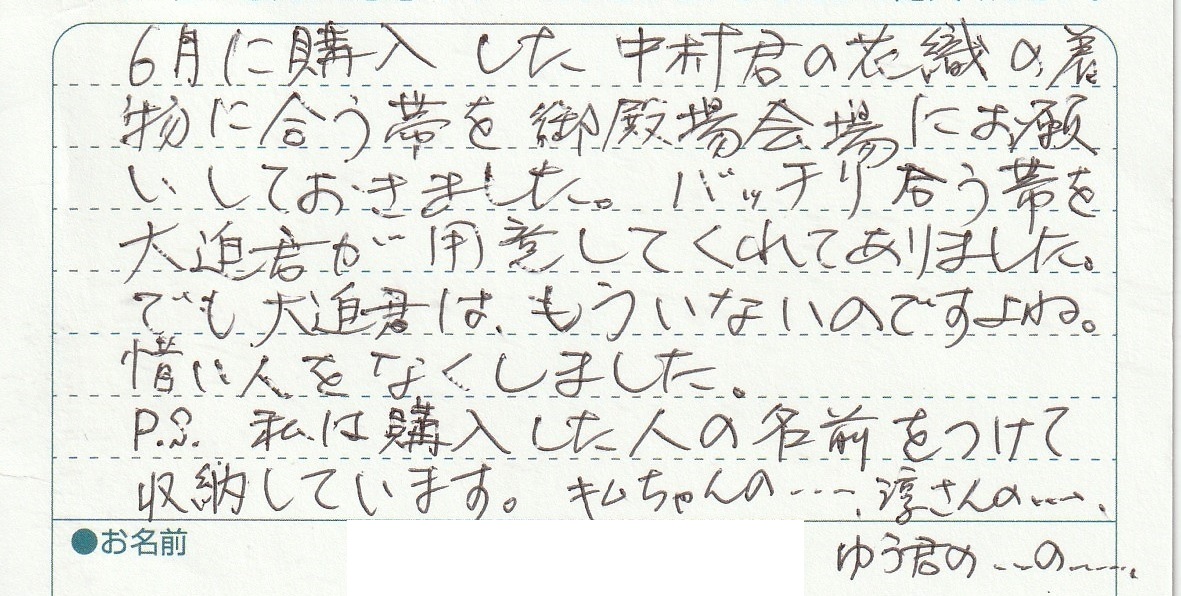 6月に購入した中村君の花織の着
物に合う帯を御殿場会場にお願
いしておきました。バッチリ合う帯を
大迫君が用意してくれてありました。
でも大迫君は、もういないのですよね。
惜しい人をなくしました。
P.S. 私は購入した人の名前をつけて
収納しています。キムちゃんの…、淳さんの…、
●お名前
ゆう君の…の…。